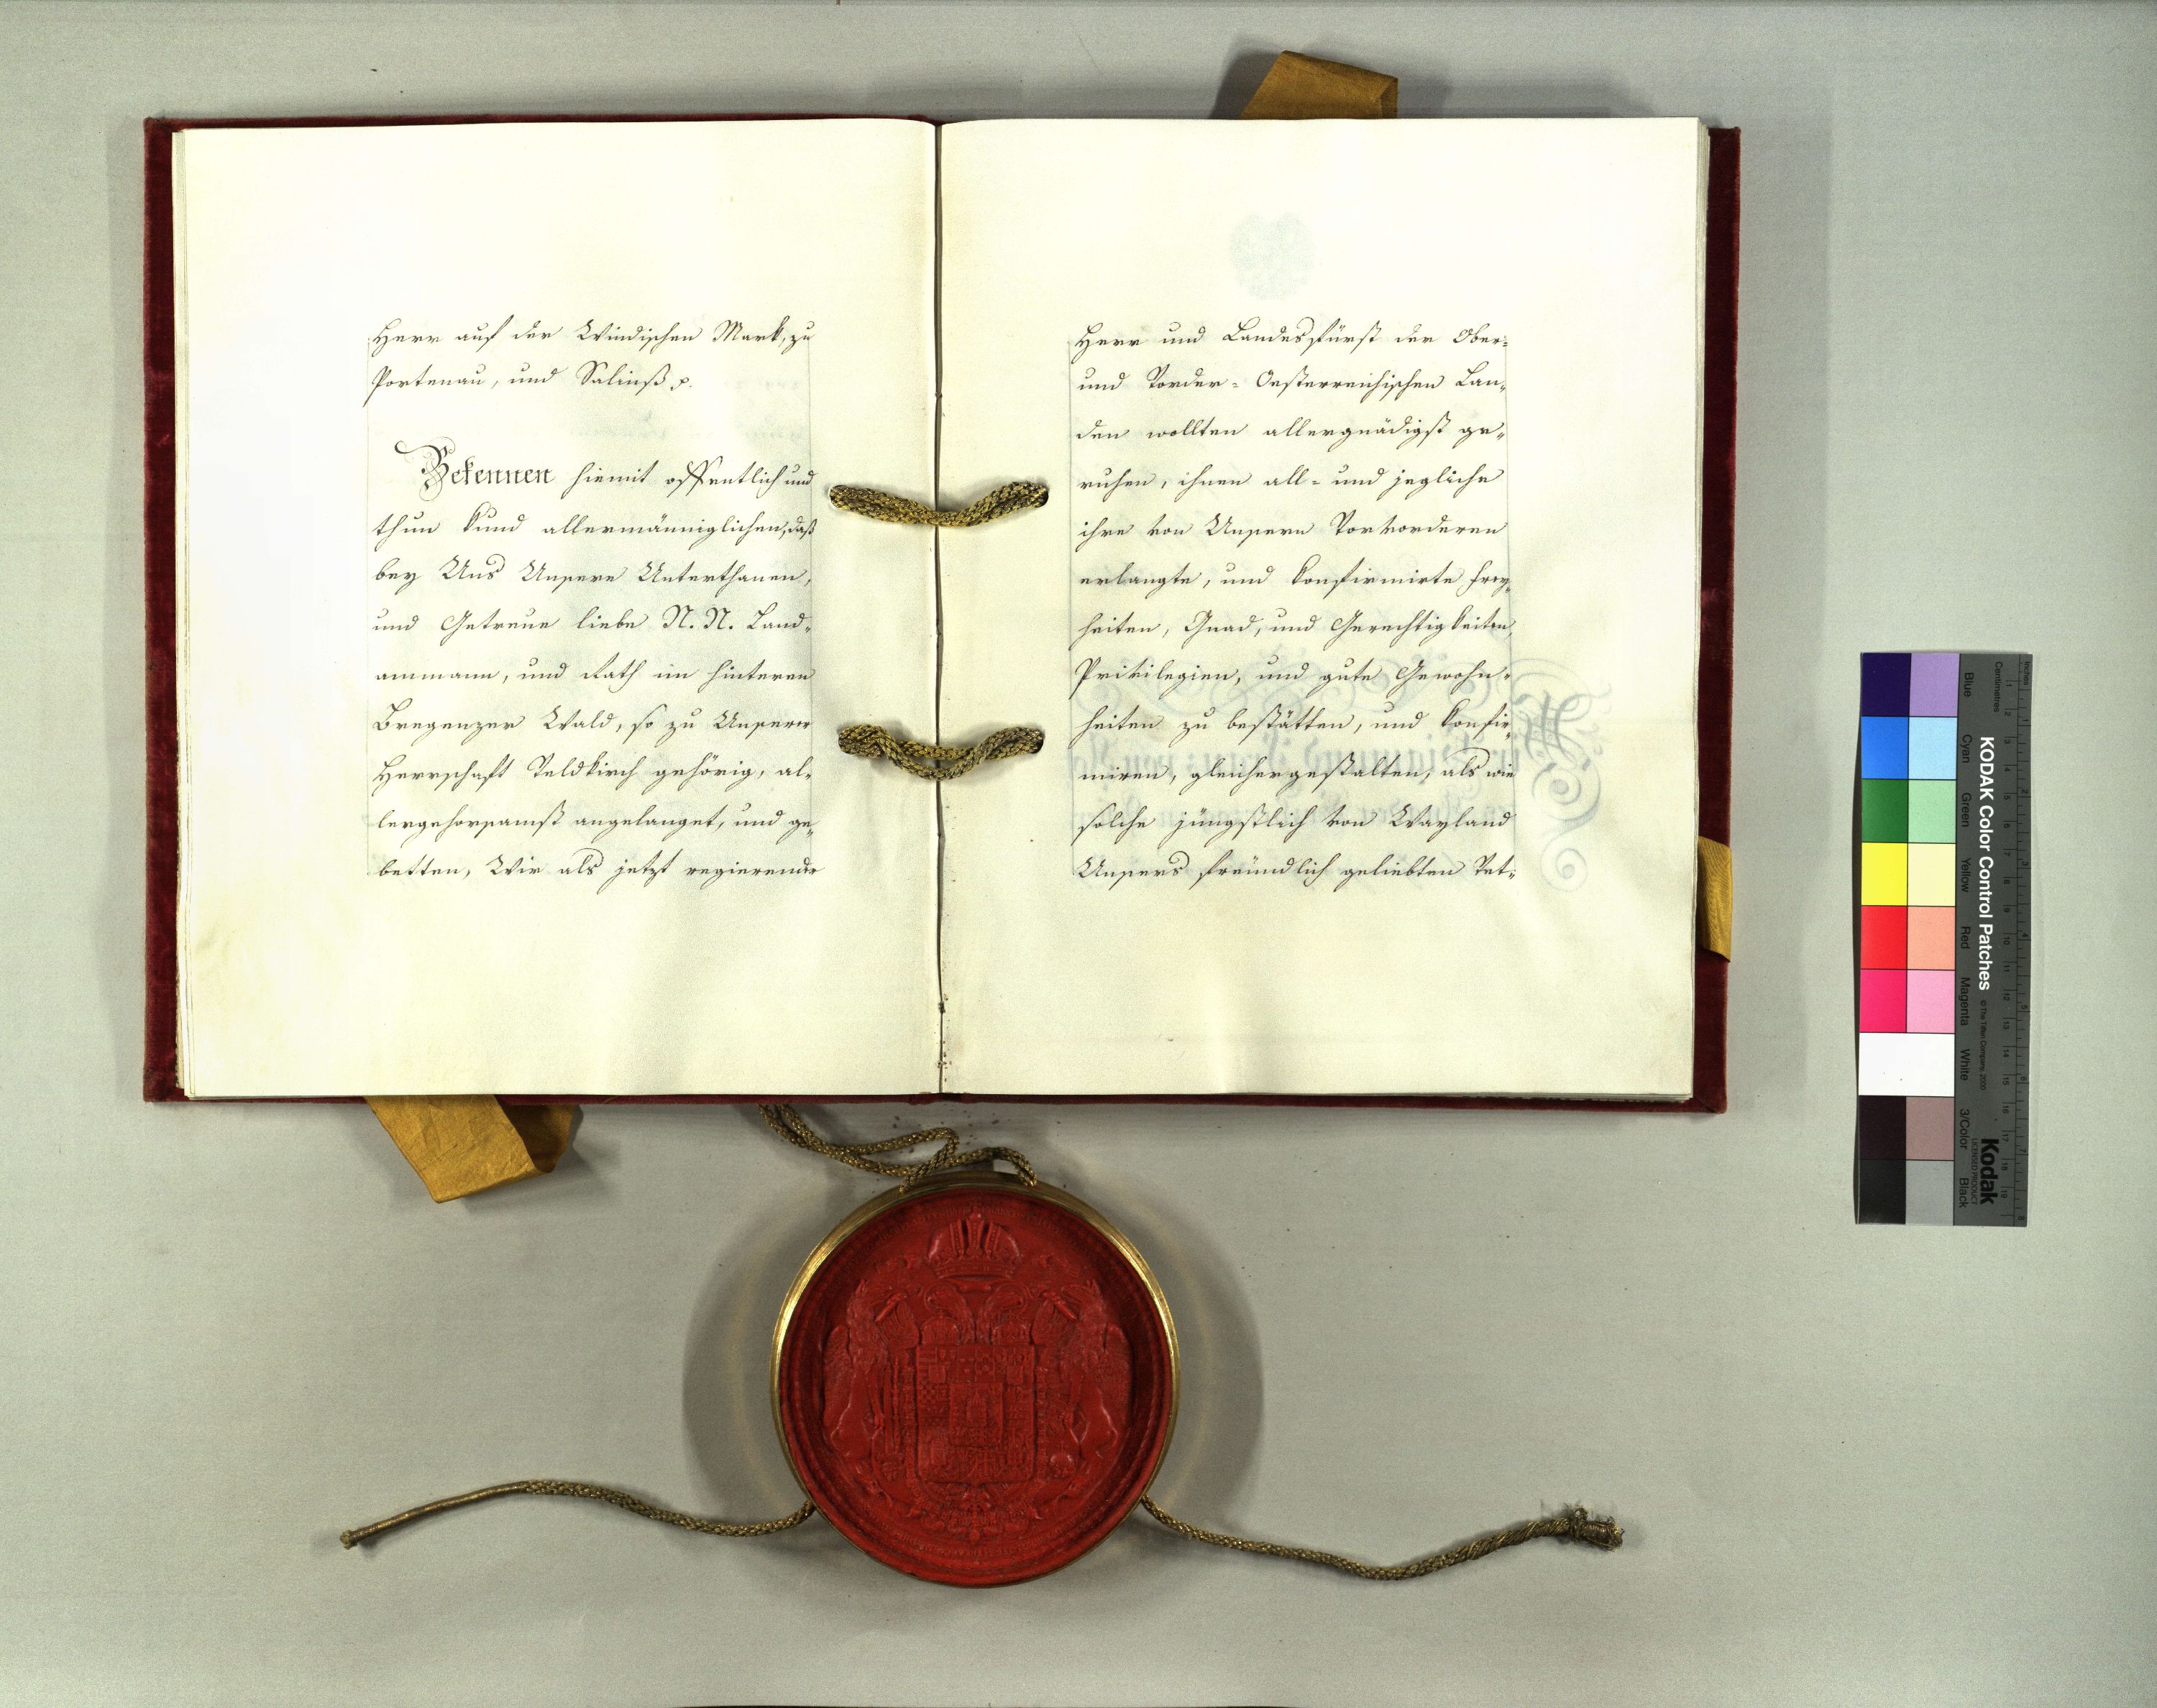 Herr auf der Windischen Mark, zu
Portenau, und Salinß p.
Bekennen hiemit offentlich und
thun kund allermänniglichen, daß
bey Uns Unsere Unterthanen,
und Getreue liebe N. N. Land-
ammann, und Rath im hinteren
Bregenzer Wald, so zu Unserer
Herrschaft Veldkirch gehörig, al-
lergehorsamst angelanget, und ge-
betten, Wir als jetzt regierender
Herr und Landesfürst der Ober-
und Vorder-Oesterreichischen Lan-
den wollten allergnädigst ge-
ruhen, ihnen all- und jegliche
ihre von Unsern Vorvorderen
erlangte, und konfirmirte Frey-
heiten, Gnad, und Gerechtigkeiten,
Privilegien, und gute Gewohn-
heiten zu bestätten, und konfir-
miren, gleichergestalten, als wie
solche jüngstlich von Wayland
Unsers freündlich geliebten Vet-
Inches
Centimetres
KODAK Color Control Patches
© The Tiffen Company, 2000
Kodak
LICENSED PRODUCT
Blue
Cyan
Green
Yellow
Red
Magenta
White
3/Color
Black